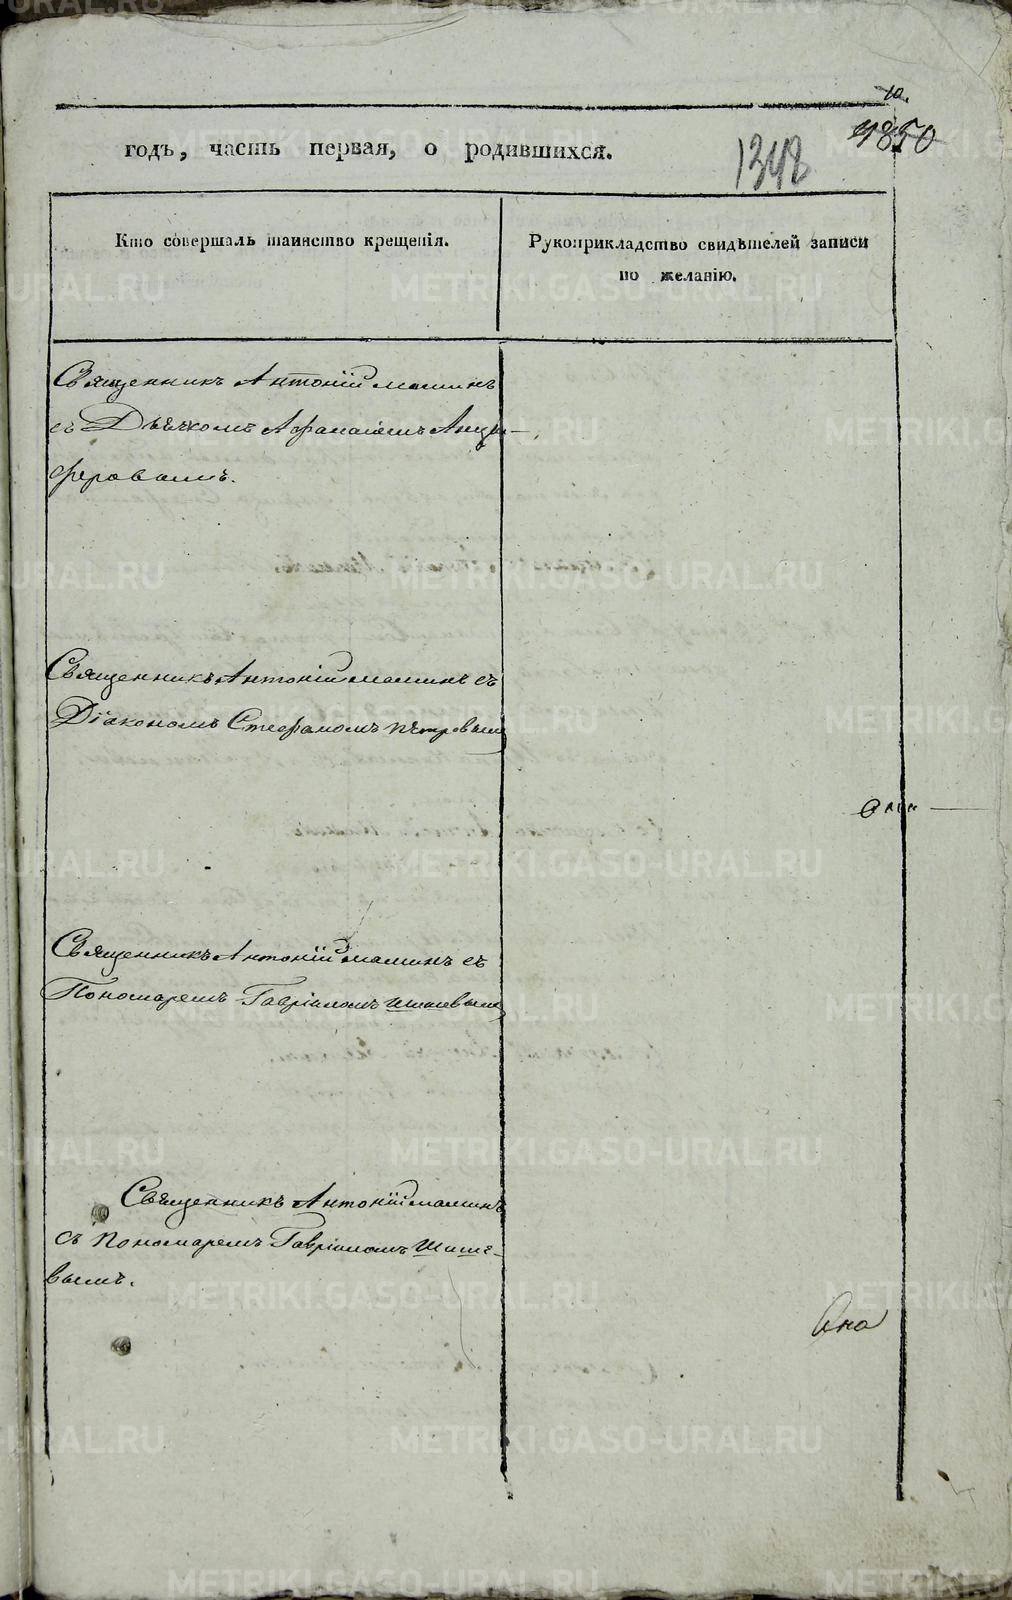 10.
1850
1348
годъ, часть первая, о родившихся.
Кто совершалъ таинство крещенія.
Рукоприкладство свидѣтелей записи
по желанію.
Священникъ Антоній Маминъ
съ Дьячкомъ Афанасіемъ Анци-
феровымъ.
Священникъ Антоній Маминъ съ
Діакономъ Стефаномъ Петровымъ
Священникъ Антоній Маминъ съ
Пономаремъ Гавріиломъ Шишевымъ
Священникъ Антоній Маминъ
съ Пономаремъ Гавріиломъ Шише-
вымъ.
METRIKI.GASO-URAL.RU